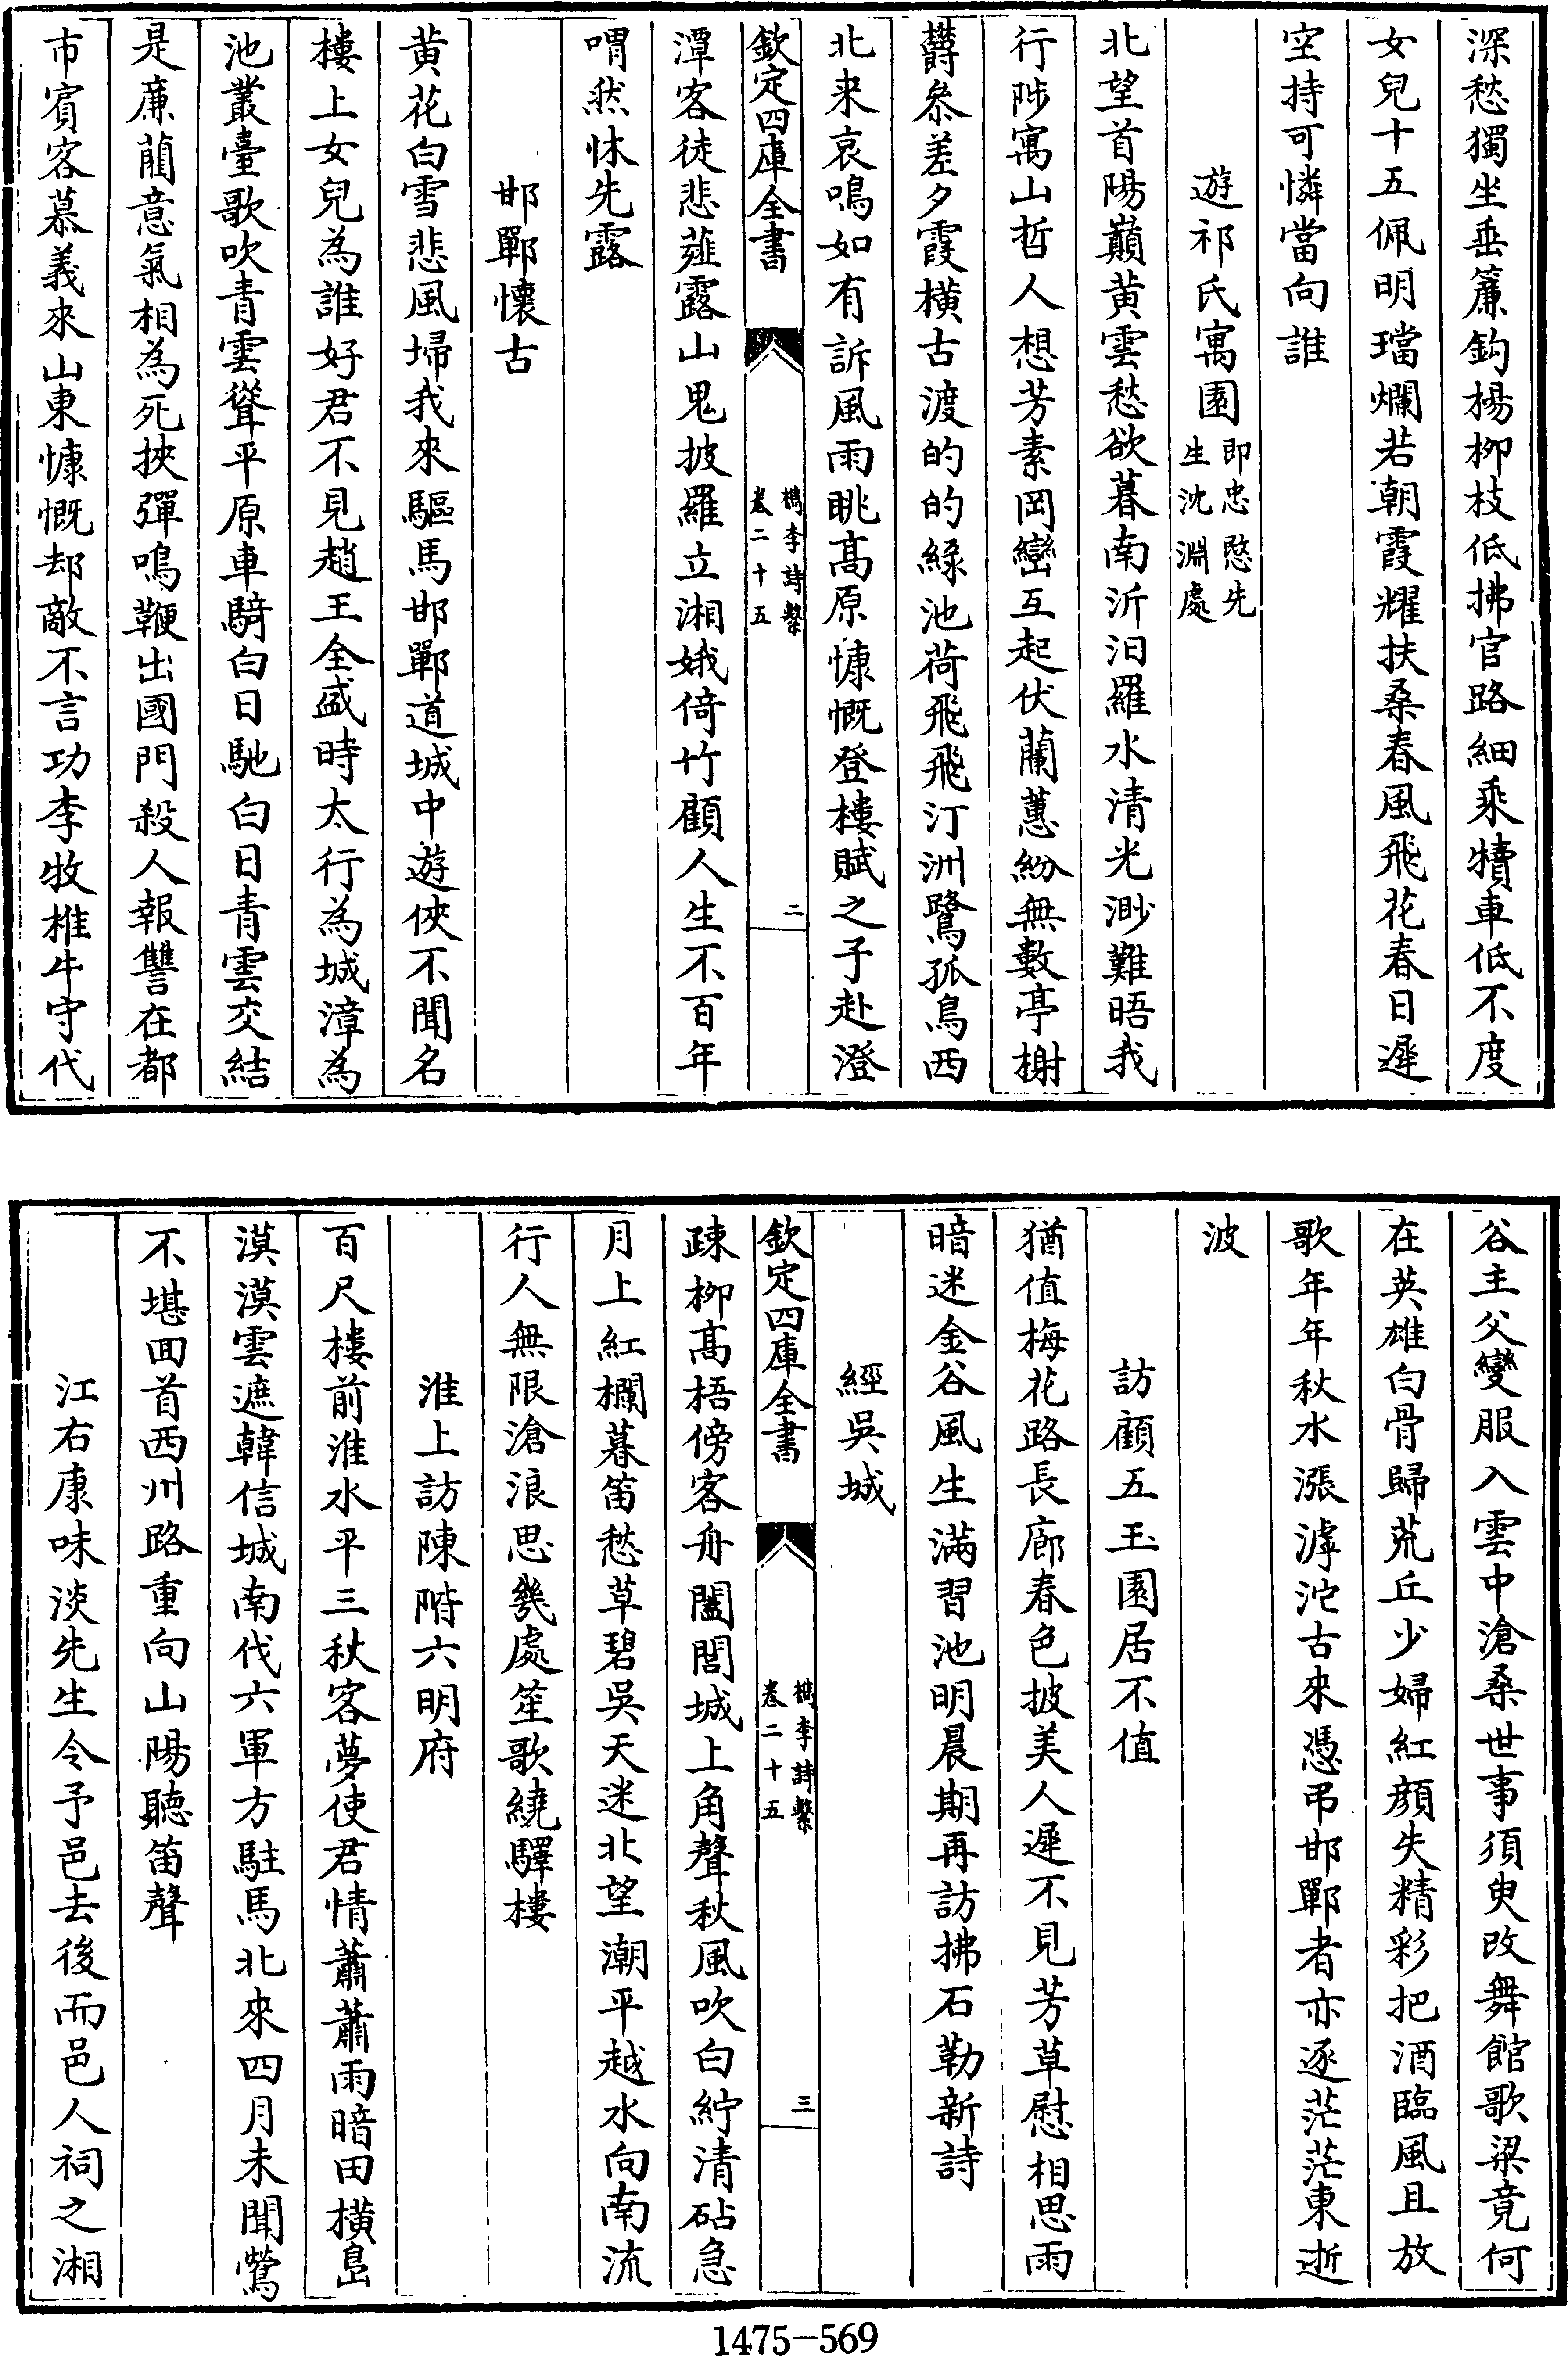 深愁獨坐垂簾鈎楊柳枝低拂官路細乘犢車低不度
女兒十五佩明璫爛若朝霞耀扶桑春風飛花春日遲
空持可憐當向誰
遊祁氏寓園即忠愍先生沈淵處
北望首陽巔黄雲愁欲暮南沂汨羅水清光渺難晤我
行陟寓山哲人想芳素岡巒互起伏蘭蕙紛無數亭榭
欝叅差夕霞横古渡的的緑池荷飛飛汀洲鷺孤鳥西
北来哀鳴如有訴風雨眺髙原慷慨登樓賦之子赴澄
欽定四庫全書
檇李詩繫
卷二十五
二
潭客徒悲薤露山鬼披羅立湘娥倚竹顧人生不百年
喟然怵先露
邯鄲懷古
黄花白雪悲風埽我來驅馬邯鄲道城中遊俠不聞名
樓上女兒為誰好君不見趙王全盛時太行為城漳為
池叢臺歌吹青雲聳平原車騎白日馳白日青雲交結
是廉藺意氣相為死挾彈鳴鞭出國門殺人報讐在都
市賓客慕義來山東慷慨却敵不言功李牧椎牛守代
谷主父變服入雲中滄桑世事須臾改舞館歌梁竟何
在英雄白骨歸荒丘少婦紅顔失精彩把酒臨風且放
歌年年秋水漲滹沱古來憑弔邯鄲者亦逐茫茫東逝
波
訪顧五玉園居不值
猶值梅花路長廊春色披美人遲不見芳草慰相思雨
暗迷金谷風生滿習池明晨期再訪拂石勒新詩
經吳城
欽定四庫全書
檇李詩繫
卷二十五
三
疎柳髙梧傍客舟闔閭城上角聲秋風吹白紵清砧急
月上紅欄暮笛愁草碧吳天迷北望潮平越水向南流
行人無限滄浪思幾處笙歌繞驛樓
淮上訪陳階六明府
百尺樓前淮水平三秋客夢使君情蕭蕭雨暗田横島
漠漠雲遮韓信城南伐六軍方駐馬北來四月未聞鶯
不堪囬首西州路重向山陽聽笛聲
江右康味淡先生令予邑去後而邑人祠之湘
1475-569